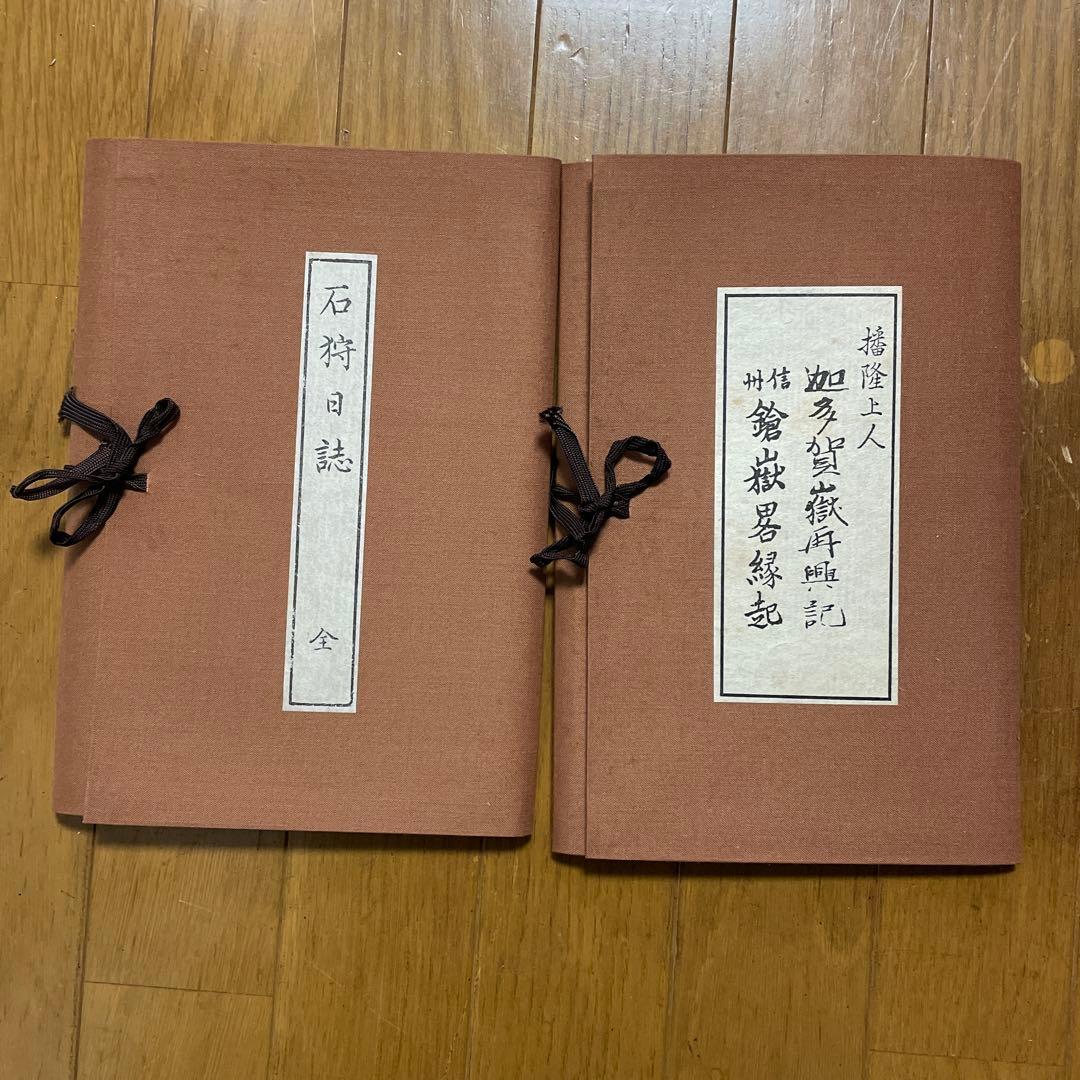 石狩日誌
全
播隆上人
迦多賀嶽再興記
信州
鎗嶽畧縁起